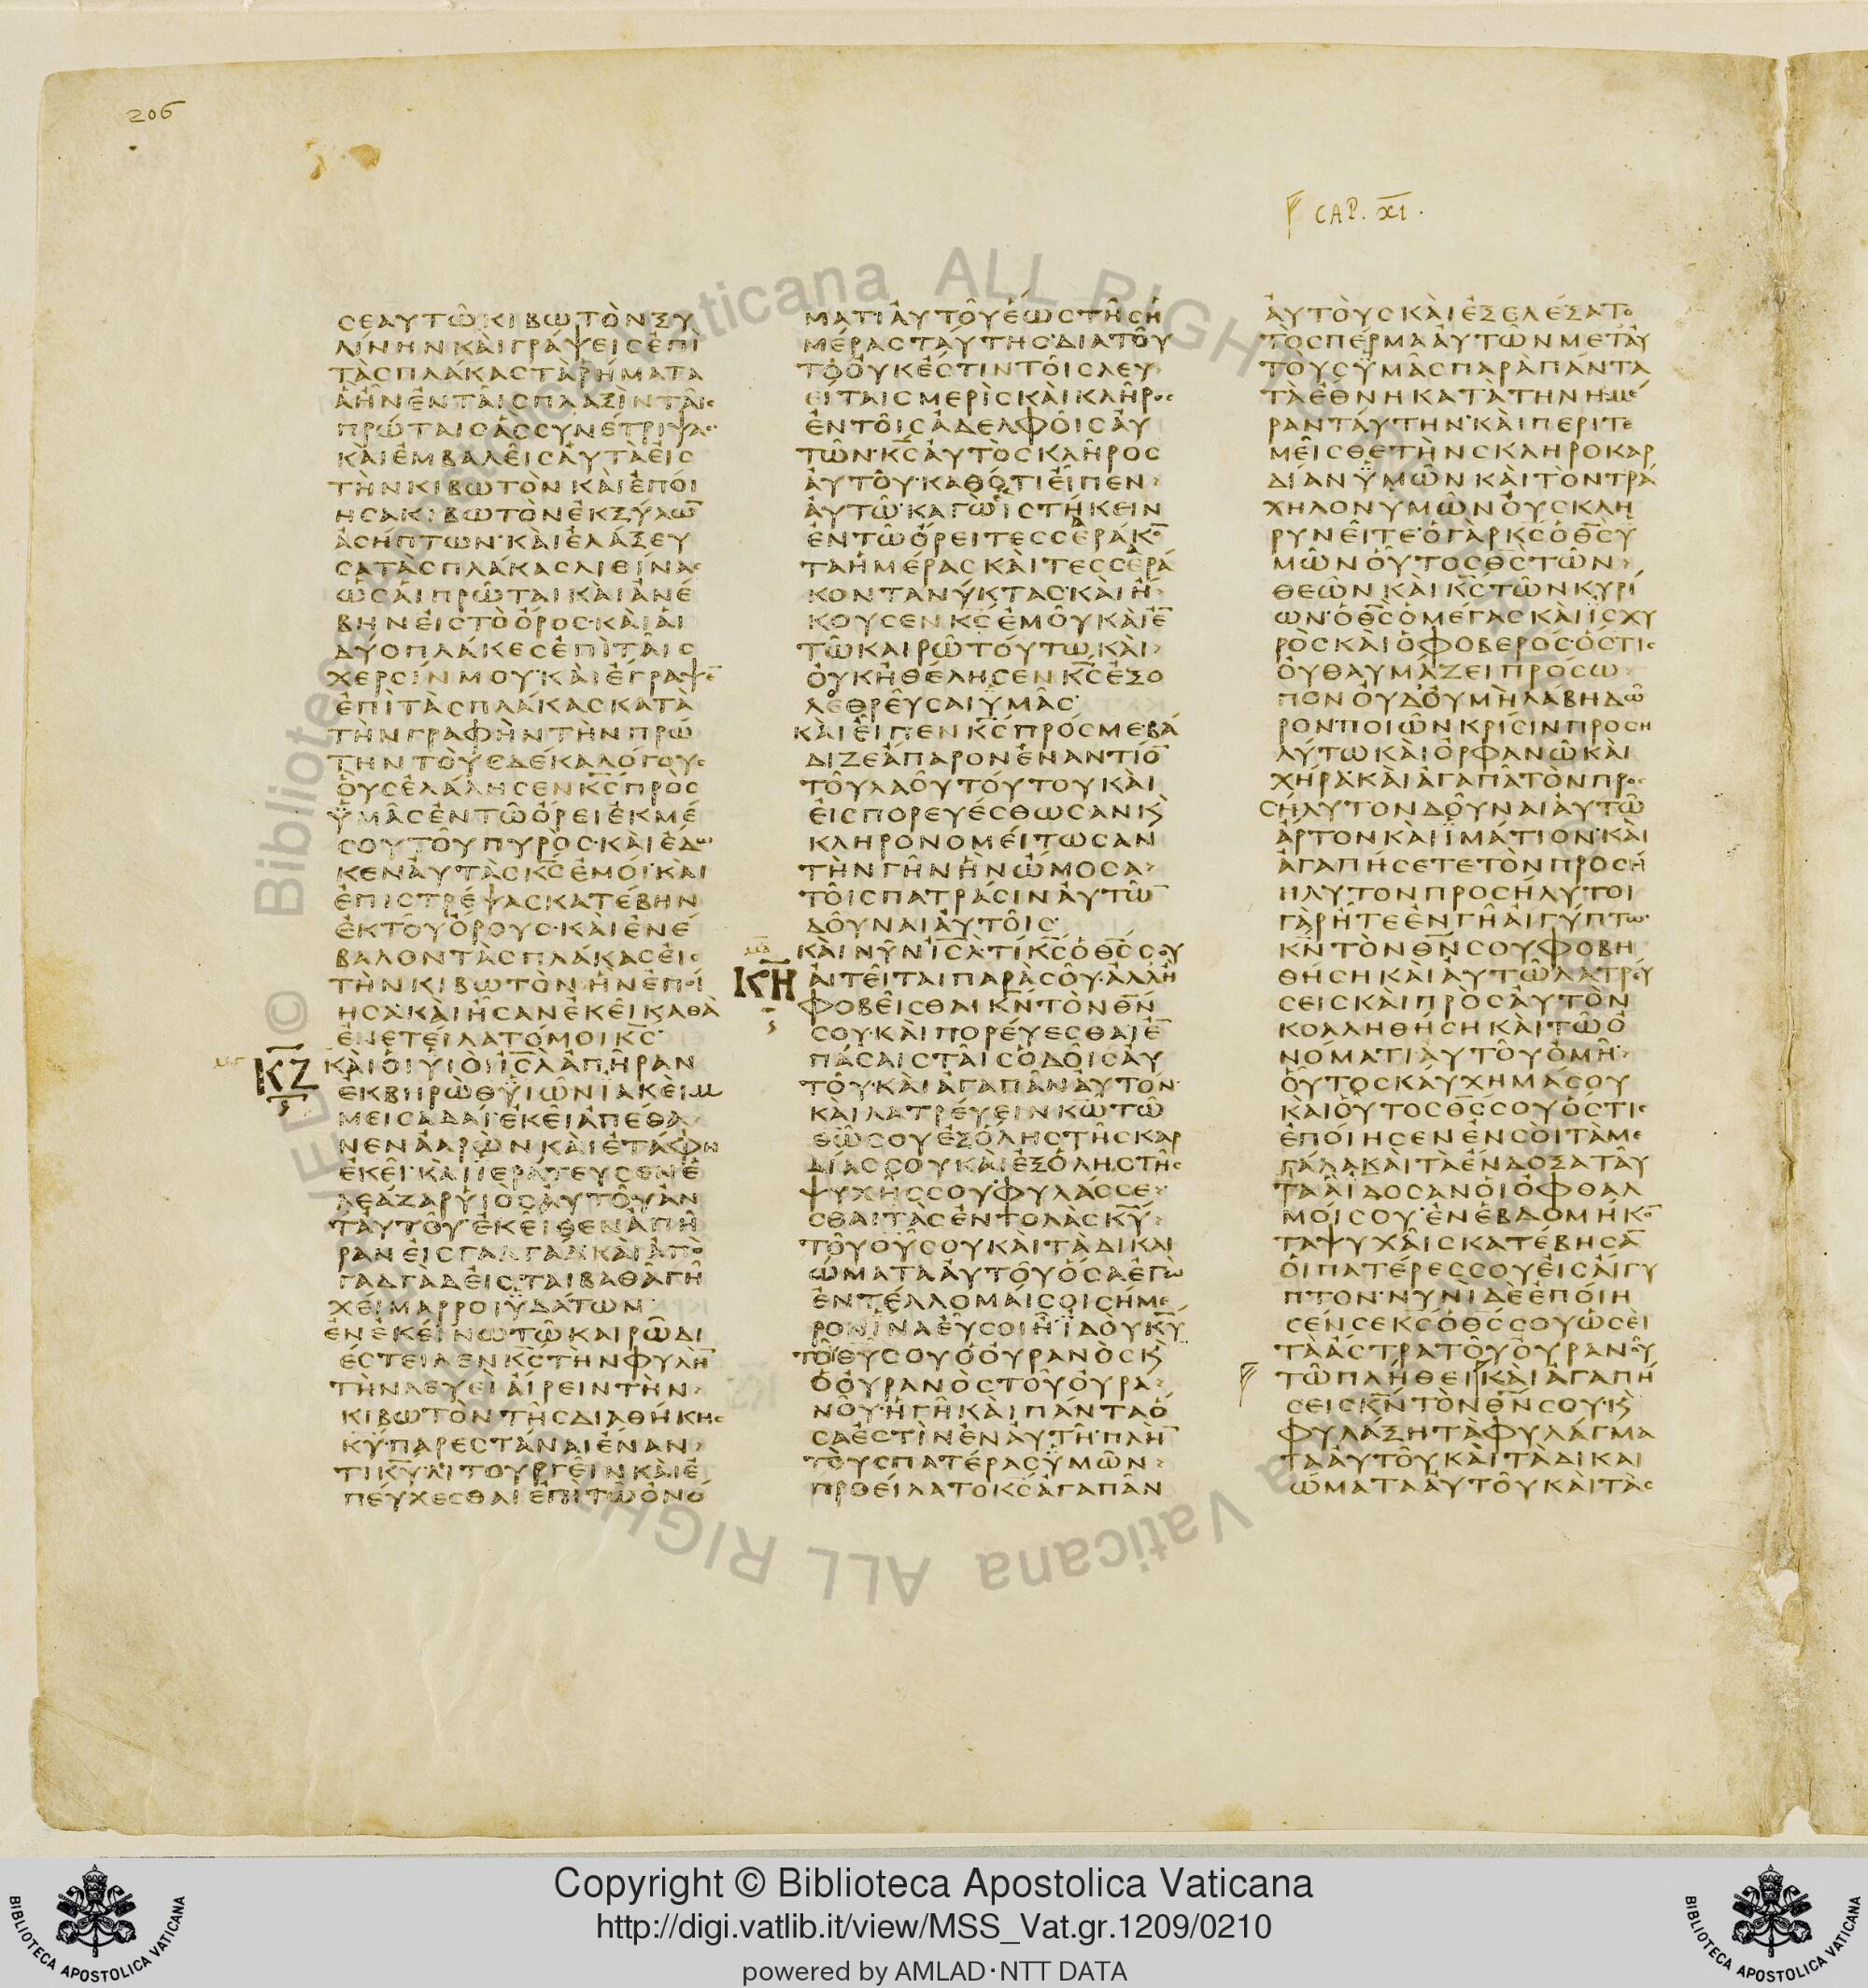 206
CAP. XI.
ϹΕΑΥΤΩ͂ΚΙΒΩΤῸΝΞΥ
ΛΊΝΗΝΚΑῚΓΡΆΨΕΙϹἘΠῚ
ΤᾺϹΠΛΆΚΑϹΤᾺΡΉΜΑΤΑ
ἋἮΝἘΝΤΑΙ͂ϹΠΛΑΞῚΝΤΑΙ͂Ϲ
ΠΡΏΤΑΙϹἋϹϹΥΝΈΤΡΙΨΑϹ
ΚΑῚἘΜΒΑΛΕΙ͂ϹΑΥ̓ΤᾺΕἸϹ
ΤῊΝΚΙΒΩΤῸΝΚΑῚἘΠΌΙ
ΗϹΑΚΙΒΩΤῸΝἘΚΞΎΛΩ̅
ἈϹΉΠΤΩΝ·ΚΑῚἘΛΆΞΕΥ
ϹΑΤᾺϹΠΛΆΚΑϹΛΙΘΊΝΑϹ
ὩϹΑἹΠΡΩ͂ΤΑΙΚΑῚἈΝΈ
ΒΗΝΕἸϹΤῸὌΡΟϹ·ΚΑῚΑἹ
ΔΎΟΠΛΆΚΕϹἘΠῚΤΑΙ͂Ϲ
ΧΕΡϹΊΝΜΟΥ·ΚΑῚἜΓΡΑΨΕ̅
ἘΠῚΤᾺϹΠΛΆΚΑϹΚΑΤᾺ
ΤῊΝΓΡΑΦῊΝΤῊΝΠΡΏ
ΤΗΝΤΟῪϹΔΈΚΑΛΌΓΟΥϹ
ΟὟϹἘΛΆΛΗϹΕΝΚ̅Ϲ̅ΠΡῸϹ
ΫΜΑ͂ϹἘΝΤΩ͂ὌΡΕΙἘΚΜΈ
ϹΟΥΤΟΥ͂ΠΥΡῸϹ·ΚΑῚἜΔΩ
ΚΕΝΑΥ̓ΤᾺϹΚ̅Ϲ̅ἘΜΌΙ·ΚΑῚ
ἘΠΙϹΤΡΈΨΑϹΚΑΤΈΒΗΝ
ἘΚΤΟΥ͂ὌΡΟΥϹ·ΚΑῚἘΝΈ
ΒΑΛΟΝΤᾺϹΠΛΆΚΑϹΕἸϹ
ΤῊΝΚΙΒΩΤῸΝἫΝἘΠΌΙ
ΗϹΑ·ΚΑῚἮϹΑΝἘΚΕΙ͂ΚΑΘᾺ
ἘΝΕΤΕΊΛΑΤΌΜΟΙΚ̅Ϲ̅·
Κ̅Ζ̅
ΚΑῚΟἹΥἹΟῚΙ̅Ϲ̅Λ̅ἈΠΗ͂ΡΑΝ
ἘΚΒΗΡῺΘΫΙΩ͂ΝΪΑΚΕῚΜ
ΜΕΙϹΑΔΑΊ·ἘΚΕΙ͂ἈΠΈΘΑ
ΝΕΝἈΑΡῺΝΚΑῚἘΤΆΦΗ
ἘΚΕΙ͂·ΚΑῚΪΕΡΆΤΕΥϹΕΝἘ
ΛΕΑΖᾺΡΥἹῸϹΑΥ̓ΤΟΥ͂ἈΝ
ΤΑΥ̓ΤΟΥ͂·ἘΚΕΙ͂ΘΕΝἈΠΗ͂
ΡΑΝΕἸϹΓΑΔΓᾺΔΚΑῚἈΠῸ
ΓΑΔΓᾺΔΕἸϹΤΑΙΒΑΘᾺΓΗ͂
ΧΕΊΜΑΡΡΟΙΫΔΆΤΩΝ·
ἘΝἘΚΕΊΝΩΤΩ͂ΚΑΙΡΩ͂ΔΙ
ΈϹΤΕΙΛΕΝΚ̅Ϲ̅ΤῊΝΦΥΛῊ̅
ΤῊΝΛΕΥΕῚΑἼΡΕΙΝΤῊΝ
ΚΙΒΩΤῸΝΤΗ͂ϹΔΙΑΘΉΚΗϹ
Κ̅Υ̅·ΠΑΡΕϹΤΆΝΑΙἜΝΑΝ
ΤΙΚ̅Υ̅·ΛΙΤΟΥΡΓΕΙ͂ΝΚΑῚἘ
ΠΕΎΧΕϹΘΑΙἘΠῚΤΩ͂ὈΝΌ
ΜΑΤΙΑΥ̓ΤΟΥ͂ἝΩϹΤΗ͂ϹἩ
ΜΈΡΑϹΤΑΎΤΗϹ·ΔΙΑΤΟΥ͂
ΤΟΟΥ̓ΚἜϹΤΙΝΤΟΙ͂ϹΛΕΥ
ΕΊΤΑΙϹΜΕΡῚϹΚΑῚΚΛΗ͂ΡΟϹ
ἘΝΤΟΙ͂ϹἈΔΕΛΦΟΙ͂ϹΑΥ̓
ΤΩ͂Ν·Κ̅Ϲ̅ΑΥ̓ΤῸϹΚΛΗ͂ΡΟϹ
ΑΥ̓ΤΟΥ͂·ΚΑΘΌΤΙΕἾΠΕΝ
ΑΥ̓ΤΩ͂·ΚΑΓῺΙϹΤΉΚΕΙΝ
ἘΝΤΩ͂ὌΡΕΙΤΕϹϹΕΡΆΚΟ̅
ΤΑἩΜΈΡΑϹΚΑῚΤΕϹϹΕΡΆ
ΚΟΝΤΑΝΎΚΤΑϹ·ΚΑῚἬ
ΚΟΥϹΕΝΚ̅Ϲ̅ἘΜΟΥ͂ΚΑῚἘ̅
ΤΩ͂ΚΑΙΡΩ͂ΤΟΎΤΩ·ΚΑῚ
ΟΥ̓ΚἨΘΈΛΗϹΕΝΚ̅Ϲ̅ἘΞΟ
ΛΕΘΡΕΥ͂ϹΑΙΫΜΑ͂Ϲ·
ΚΑῚΕἾΠΕΝΚ̅Ϲ̅ΠΡΌϹΜΕ·ΒΆ
ΔΙΖΕἈΠΑΡΟΝἘΝΑΝΤΊΟ̅
ΤΟΥ͂ΛΑΟΥ͂ΤΟΎΤΟΥΚΑῚ
ΕἸϹΠΟΡΕΥΈϹΘΩϹΑΝΚ̀
ΚΛΗΡΟΝΟΜΕΊΤΩϹΑΝ
ΤῊΝΓΗ͂ΝἫΝὬΜΟϹΑ
ΤΟΙ͂ϹΠΑΤΡΆϹΙΝΑΥ̓ΤΩ̅
ΔΟΥ͂ΝΑΙΑΥ̓ΤΟΙ͂Ϲ·
Κ̅Η̅
ΚΑῚΝΥ͂ΝΙ̅Ϲ̅Λ̅·ΤΊΚ̅Ϲ̅ὉΘ̅Ϲ̅ϹΟΥ
ΑἸΤΕΙ͂ΤΑΙΠΑΡᾺϹΟΥ͂·ἈΛΛΉ
ΦΟΒΕΙ͂ϹΘΑΙΚ̅Ν̅ΤῸΝΘ̅Ν̅
ϹΟΥ·ΚΑῚΠΟΡΕΎΕϹΘΑΙἘ̅
ΠΆϹΑΙϹΤΑΙ͂ϹὉΔΟΙ͂ϹΑΥ̓
ΤΟΥ͂·ΚΑῚἈΓΑΠΑ͂ΝΑΥ̓ΤΌΝ·
ΚΑῚΛΑΤΡΕΎΕΙΝΚ̅Ω̅ΤΩ͂
Θ̅Ω̅ϹΟΥἘΞΌΛΗϹΤΗ͂ϹΚΑΡ
ΔΊΑϹϹΟΥΚΑῚἘΞΌΛΗϹΤΗ͂Ϲ
ΨΥΧΗ͂ϹϹΟΥ·ΦΥΛΆϹϹΕ
ϹΘΑΙΤᾺϹἘΝΤΟΛᾺϹΚ̅Υ̅
ΤΟΥ͂Θ̅Υ̅ϹΟΥΚΑῚΤᾺΔΙΚΑΙ
ΏΜΑΤΑΑΥ̓ΤΟΥ͂ὍϹΑἘΓῺ
ἘΝΤΈΛΛΟΜΑΊϹΟΙϹΉΜΕ
ΡΟΝΪΝΑΕΥ͂ϹΟΙἮ·ΪΔΟῪΚ̅Υ̅
ΤΟΥ͂Θ̅Υ̅ϹΟΥὉΟΥ̓ΡΑΝῸϹΚ̀
ὉΟΥ̓ΡΑΝῸϹΤΟΥ͂ΟΥ̓ΡΑ
ΝΟΥ͂·ἩΓΗ͂ΚΑῚΠΆΝΤΑὍ
ϹΑἘϹΤῚΝἘΝΑΥ̓ΤΗ͂·ΠΛῊ̅
ΤΟῪϹΠΑΤΈΡΑϹΫΜΩ͂Ν
ΠΡΟΕΊΛΑΤΟΚ̅Ϲ̅ἈΓΑΠΑ͂Ν
ΑΥ̓ΤΟῪϹΚΑῚἘΞΕΛΈΞΑΤΟ
ΤῸϹΠΈΡΜΑΑΥ̓ΤΩ͂ΝΜΕΤΑΥ̓
ΤΟῪϹΫΜΑ͂ϹΠΑΡᾺΠΆΝΤΑ
ΤᾺἜΘΝΗΚΑΤᾺΤΗΝΗΜΈ
ΡΑΝΤΑΎΤΗΝ·ΚΑῚΠΕΡΙΤΕ
ΜΕΙ͂ϹΘΕΤῊΝϹΚΛΗΡΟΚΑΡ
ΔΊΑΝΫΜΩ͂ΝΚΑῚΤῸΝΤΡΆ
ΧΗΛΟΝΫΜΩ͂ΝΟΥ̓ϹΚΛΗ
ΡΥΝΕΙ͂ΤΕ·ὉΓᾺΡΚ̅Ϲ̅ὉΘ̅Ϲ̅Ϋ
ΜΩ͂ΝΟὟΤΟϹΘ̅Ϲ̅ΤΩ͂Ν
ΘΕΩ͂ΝΚΑῚΚ̅Ϲ̅ΤΩ͂ΝΚΥΡΊ
ΩΝ·ὉΘ̅Ϲ̅ὉΜΈΓΑϹΚΑῚΪϹΧΥ
ΡῸϹΚΑῚὉΦΟΒΕΡΌϹ·ὍϹΤΙϹ
ΟΥ̓ΘΑΥΜΆΖΕΙΠΡΌϹΩ
ΠΟΝΟΥ̓ΔΟΥ̓ΜῊΛΆΒΗΔΩ͂
ΡΟΝ·ΠΟΙΩ͂ΝΚΡΊϹΙΝΠΡΟϹΗ
ΛΎΤΩΚΑῚὈΡΦΑΝΩ͂ΚΑῚ
ΧΉΡΑ·ΚΑῚἈΓΑΠΑ͂ΤῸΝΠΡΟϹ
ϹΉΛΥΤΟΝΔΟΥ͂ΝΑΙΑΥ̓ΤΩ͂
ἌΡΤΟΝΚΑῚΪΜΆΤΙΟΝ·ΚΑῚ
ἈΓΑΠΉϹΕΤΕΤῸΝΠΡΟϹΉ
ΗΛΥΤΟΝΠΡΟϹΉΛΥΤΟΙ
ΓᾺΡἮΤΕἘΝΓΗ͂ΑἸΓΎΠΤΩ·
Κ̅Ν̅ΤῸΝΘ̅Ν̅ϹΟΥΦΟΒΗ
ΘΉϹΗΚΑῚΑΥ̓ΤΩ͂ΛΑΤΡΕΎ
ϹΕΙϹΚΑῚΠΡῸϹΑΥ̓ΤῸΝ
ΚΟΛΛΗΘΉϹΗΚΑῚΤΩ͂Ὀ
ΝΌΜΑΤΙΑΥ̓ΤΟΥ͂ὈΜΗ͂·
ΟὟΤΟϹΚΑΎΧΗΜΆϹΟΥ
ΚΑῚΟὟΤΟϹΘ̅Ϲ̅ϹΟΥὍϹΤΙϹ
ἘΠΌΙΗϹΕΝἘΝϹΟῚΤᾺΜΕ
ΓΆΛΑΚΑῚΤᾺἜΝΔΟΞΑΤΑΥ͂
ΤΑἋἼΔΟϹΑΝΟἹὈΦΘΑΛ
ΜΟΊϹΟΥ·ἘΝἙΒΔΟΜΉΚΟ̅
ΤΑΨΥΧΑΙ͂ϹΚΑΤΈΒΗϹΑ̅
ΟἹΠΑΤΈΡΕϹϹΟΥΕἸϹΑἼΓΥ
ΠΤΟΝ·ΝΥΝῚΔΈἘΠΌΙΗ
ϹΈΝϹΕΚ̅Ϲ̅ὉΘ̅Ϲ̅ϹΟΥὩϹΕῚ
ΤᾺἌϹΤΡΑΤΟΥ͂ΟΥ̓ΡΑΝΟΥ͂
ΤΩ͂ΠΛΉΘΕΙΚΑῚἈΓΑΠΉ
ϹΕΙϹΚ̅Ν̅ΤῸΝΘ̅Ν̅ϹΟΥ·Κ̀
ΦΥΛΆΞΗΤᾺΦΥΛΆΓΜΑ
ΤΑΑΥ̓ΤΟΥ͂ΚΑῚΤᾺΔΙΚΑΙ
ΏΜΑΤΑΑΥ̓ΤΟΥ͂ΚΑῚΤᾺϹ
© Biblioteca Apostolica Vaticana ALL RIGHTS RESERVED
Copyright © Biblioteca Apostolica Vaticana
http://digi.vatlib.it/view/MSS_Vat.gr.1209/0210
powered by AMLAD·NTT DATA
BIBLIOTECA APOSTOLICA VATICANA
BIBLIOTECA APOSTOLICA VATICANA